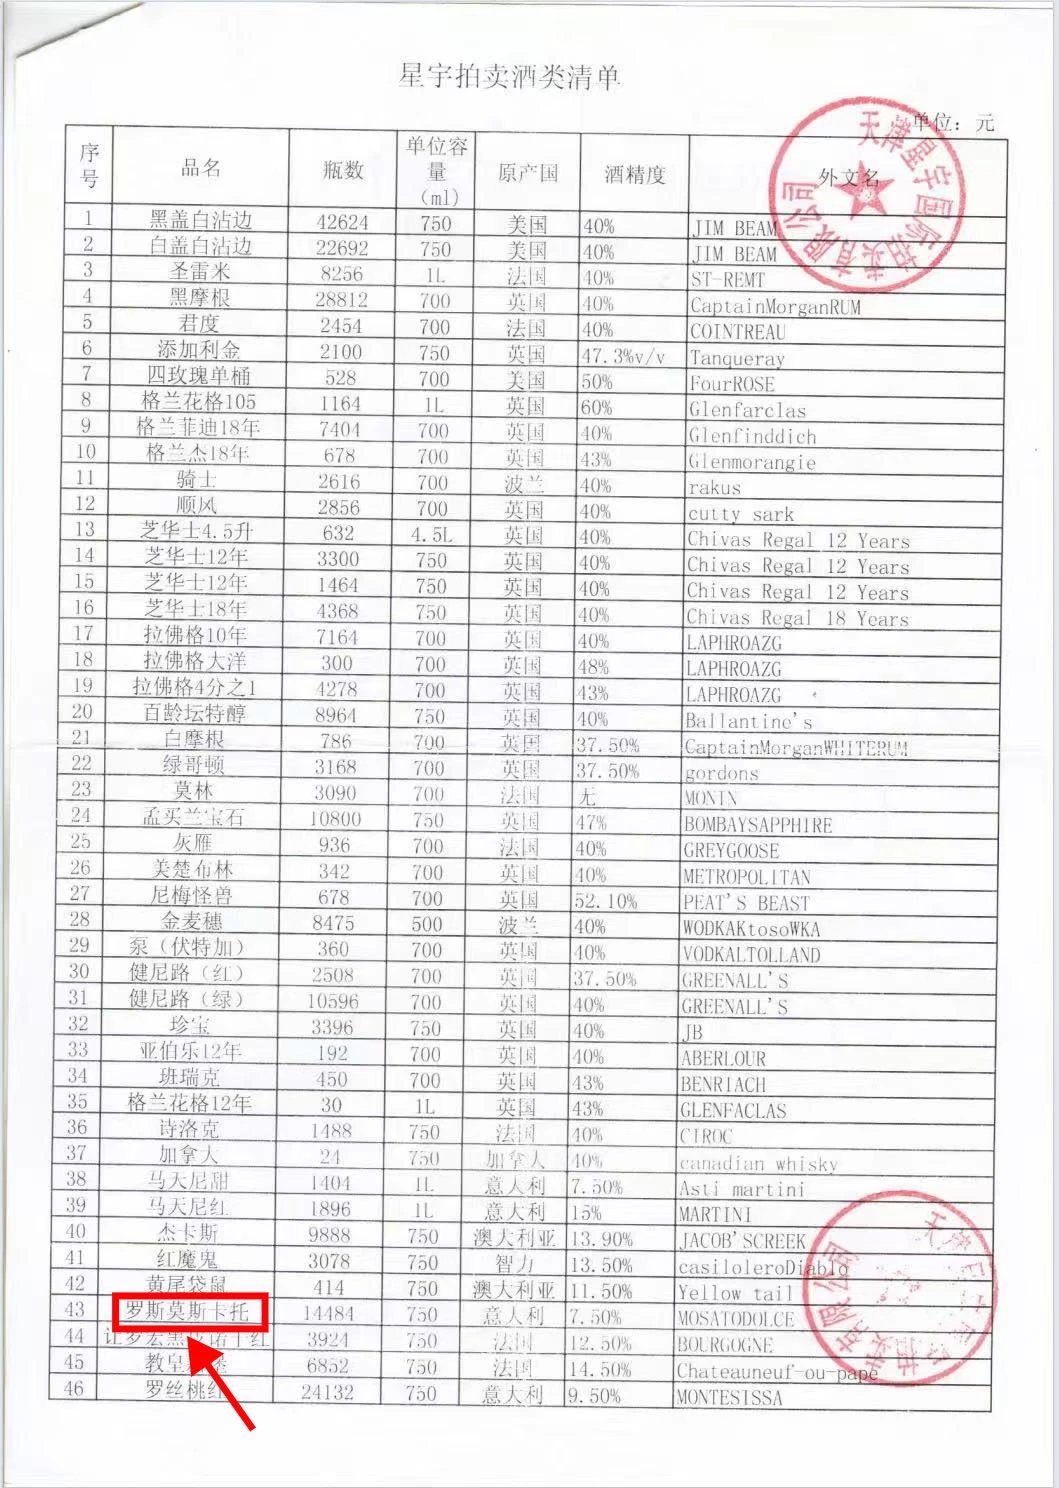 星宇拍卖酒类清单
单位：元
序号 品名 瓶数 单位容量（ml） 原产国 酒精度 外文名
1 黑盖白沾边 42624 750 美国 40% JIM BEAM
2 白盖白沾边 22692 750 美国 40% JIM BEAM
3 圣雷米 8256 1L 法国 40% ST-REMT
4 黑摩根 28812 700 英国 40% CaptainMorganRUM
5 君度 2454 700 法国 40% COINTREAU
6 添加利金 2100 750 英国 47.3%v/v Tanqueray
7 四玫瑰单桶 528 700 美国 50% FourROSE
8 格兰花格105 1164 1L 英国 60% Glenfarclas
9 格兰菲迪18年 7404 700 英国 40% Glenfinddich
10 格兰杰18年 678 700 英国 43% Glenmorangie
11 骑士 2616 700 波兰 40% rakus
12 顺风 2856 700 英国 40% cutty sark
13 芝华士4.5升 632 4.5L 英国 40% Chivas Regal 12 Years
14 芝华士12年 3300 750 英国 40% Chivas Regal 12 Years
15 芝华士12年 1464 750 英国 40% Chivas Regal 12 Years
16 芝华士18年 4368 750 英国 40% Chivas Regal 18 Years
17 拉佛格10年 7164 700 英国 40% LAPHROAZG
18 拉佛格大洋 300 700 英国 48% LAPHROAZG
19 拉佛格4分之1 4278 700 英国 43% LAPHROAZG
20 百龄坛特醇 8964 750 英国 40% Ballantine's
21 白摩根 786 700 英国 37.50% CaptainMorganWHITERUM
22 绿哥顿 3168 700 英国 37.50% gordons
23 莫林 3090 700 法国 无 MONIN
24 孟买兰宝石 10800 750 英国 47% BOMBAYSAPPHIRE
25 灰雁 936 700 法国 40% GREYGOOSE
26 美楚布林 342 700 英国 40% METROPOLITAN
27 尼梅怪兽 678 700 英国 52.10% PEAT'S BEAST
28 金麦穗 8475 500 波兰 40% WODKAKtosoWKA
29 泵（伏特加） 360 700 英国 40% VODKALTOLLAND
30 健尼路（红） 2508 700 英国 37.50% GREENALL'S
31 健尼路（绿） 10596 700 英国 40% GREENALL'S
32 珍宝 3396 750 英国 40% JB
33 亚伯乐12年 192 700 英国 40% ABERLOUR
34 班瑞克 450 700 英国 43% BENRIACH
35 格兰花格12年 30 1L 英国 43% GLENFACLAS
36 诗洛克 1488 750 法国 40% CIROC
37 加拿大 24 750 加拿大 40% canadian whisky
38 马天尼甜 1404 1L 意大利 7.50% Asti martini
39 马天尼红 1896 1L 意大利 15% MARTINI
40 杰卡斯 9888 750 澳大利亚 13.90% JACOB'SCREEK
41 红魔鬼 3078 750 智力 13.50% casiloleroDiablo
42 黄尾袋鼠 414 750 澳大利亚 11.50% Yellow tail
43 罗斯莫斯卡托 14484 750 意大利 7.50% MOSATODOLCE
44 3924 750 法国 12.50% BOURGOGNE
45 教皇 6852 750 法国 14.50% Chateauneuf-ou-pape
46 罗丝桃红 24132 750 意大利 9.50% MONTESISSA
天津星宇国际拍卖有限公司